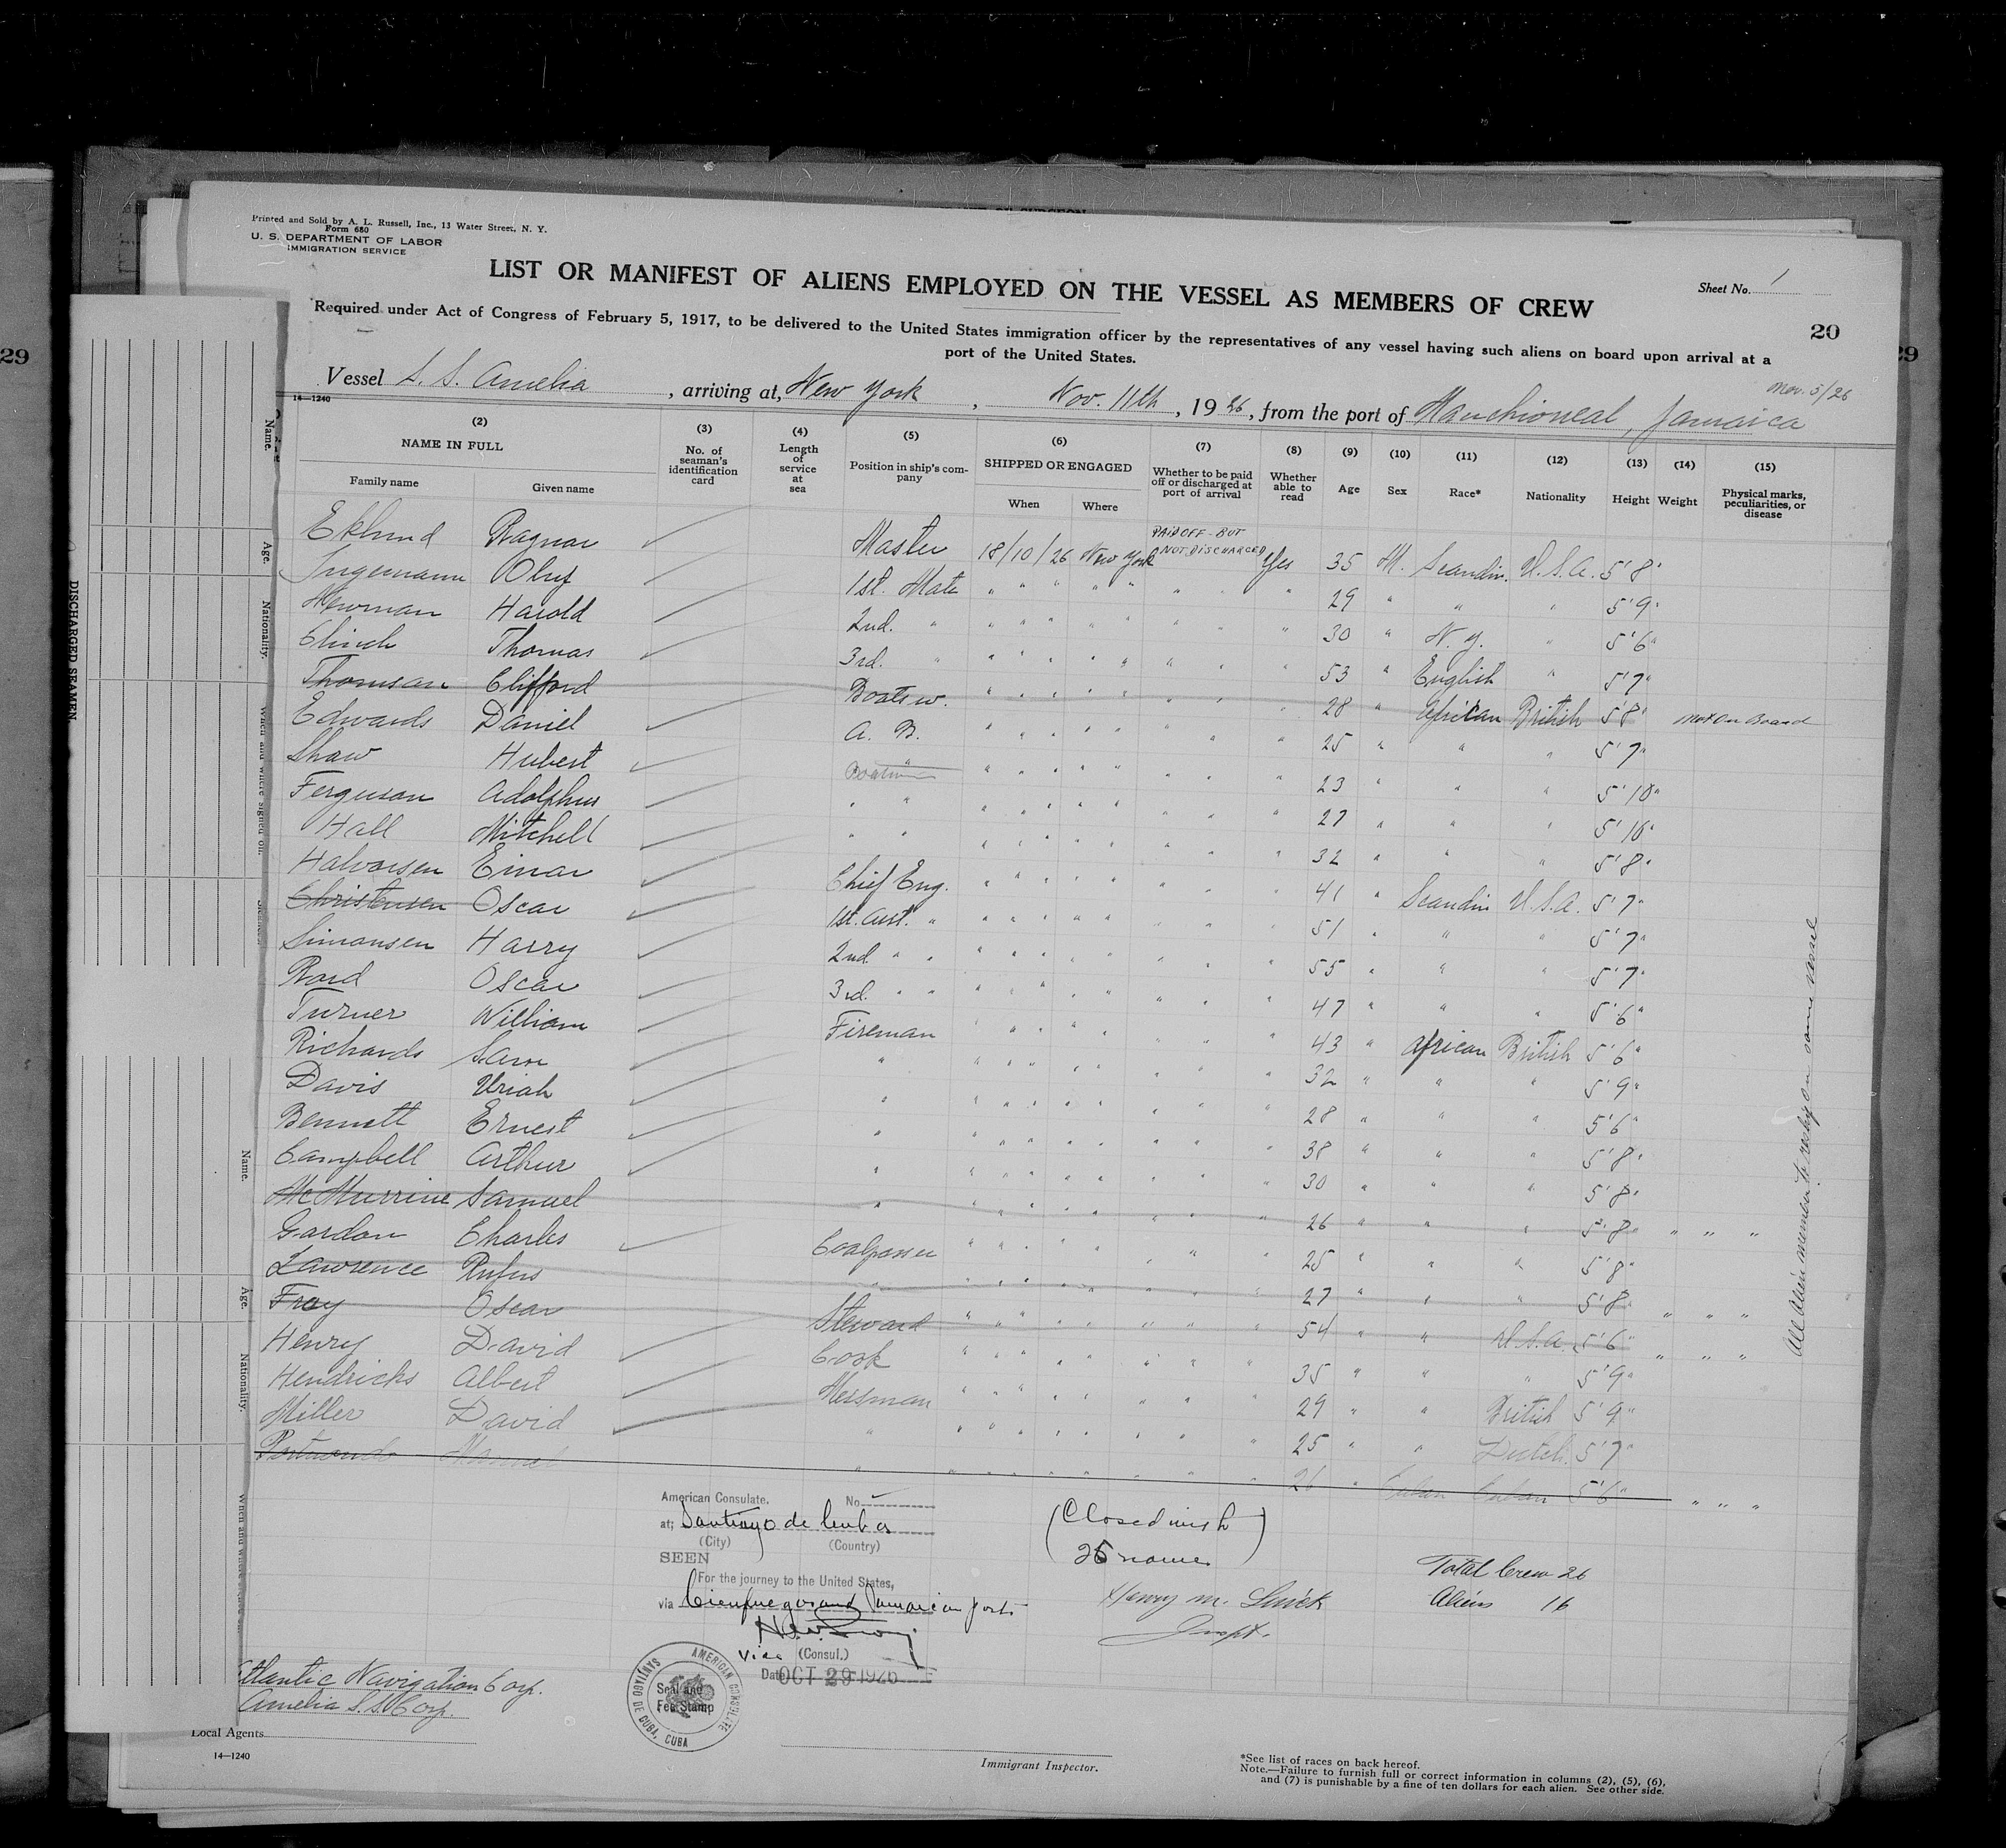 Printed and Sold by A. L. Russell, Inc., 13 Water Street, N. Y.
Form 680
U. S. DEPARTMENT OF LABOR
IMMIGRATION SERVICE
LIST OR MANIFEST OF ALIENS EMPLOYED ON THE VESSEL AS MEMBERS OF CREW
Sheet No. 1
Required under Act of Congress of February 5, 1917, to be delivered to the United States immigration officer by the representatives of any vessel having such aliens on board upon arrival at a
port of the United States.
20
29
29
Nov. 5/26
Vessel S. S. Amelia, arriving at, New York, Nov. 11th, 1926, from the port of Manchioneal, Jamaica
14—1240
(2) (3) (4) (5) (6) (7) (8) (9) (10) (11) (12) (13) (14) (15)
NAME IN FULL
Family name Given name
No. of seaman's identification card
Length of service at sea
Position in ship's company
SHIPPED OR ENGAGED
When Where
Whether to be paid off or discharged at port of arrival
Whether able to read
Age Sex Race* Nationality Height Weight
Physical marks, peculiarities, or disease
PAID OFF - BUT
NOT DISCHARGED
Eklund Ragnar Master 18/10/26 New York Yes 35 M. Scandin. U.S.A. 5' 8"
Ingemann Oluf 1st. Mate " " " " " " " 29 " " " 5' 9"
Newman Harold 2nd. " " " " " " " " " 30 " N. Y. " 5' 6"
Clinch Thomas 3rd. " " " " " " " " " 53 " English " 5' 7"
Thomson Clifford Boatsw. " " " " " " " " 28 " African British 5' 8" Not on Board
Edwards Daniel A. B. " " " " " " " " 25 " " " 5' 7"
Shaw Hubert Boatsw " " " " " " " 23 " " " 5' 10"
Ferguson Adolphus " " " " " " " " " 27 " " " 5' 10"
Hall Mitchell " " " " " " " " " 32 " " " 5' 8"
Halvorsen Einar Chief Eng. " " " " " " " 41 " Scandin U.S.A. 5' 7"
Christensen Oscar 1st. Asst. " " " " " " " " 51 " " " 5' 7"
Simonsen Harry 2nd. " " " " " " " " " 55 " " " 5' 7"
Oscar 3rd. " " " " " " " " " 47 " " " 5' 6"
Turner William Fireman " " " " " " " 43 " African British 5' 6"
Richards Sam " " " " " " " " 32 " " " 5' 9"
Davis Uriah " " " " " " " " 28 " " " 5' 6"
Bennett Ernest " " " " " " " " 38 " " " 5' 8"
Campbell Arthur " " " " " " " " 30 " " " 5' 8"
McMurrine Samuel " " " " " " " " 26 " " " 5' 8" " " "
Gordon Charles Coalpasser " " " " " " " 25 " " " 5' 8"
Lawrence Rufus " " " " " " " " 27 " " " 5' 8" " " "
Fray Oscar Steward " " " " " " " 54 " " U.S.A. 5' 6" " " "
Henry David Cook " " " " " " " 35 " " " 5' 9"
Hendricks Albert Messman " " " " " " " 29 " " British 5' 9"
Miller David " " " " " " " " 25 " " Dutch. 5' 7"
Portuondo Manuel " " " " " " " " 26 " Cuban Cuban 5' 6" " " "
All Alien seamen to reship on same vessel
American Consulate. No
at; Santiago de Cuba
(City) (Country)
SEEN
For the journey to the United States,
via Cienfuegos and Jamaican ports
Vice (Consul.)
Date OCT 29 1926
AMERICAN CONSULATE
SANTIAGO DE CUBA, CUBA
Seal and
Fee Stamp
(Closed with
26 names)
Henry M.
Inspt.
Total Crew 26
Aliens 16
Atlantic Navigation Corp.
Amelia S.S. Corp.
Local Agents
14—1240
Immigrant Inspector.
*See list of races on back hereof.
Note.—Failure to furnish full or correct information in columns (2), (5), (6),
and (7) is punishable by a fine of ten dollars for each alien. See other side.
DISCHARGED SEAMEN
Name.
Age.
Nationality.
When and where signed on.
Name.
Age.
Nationality.